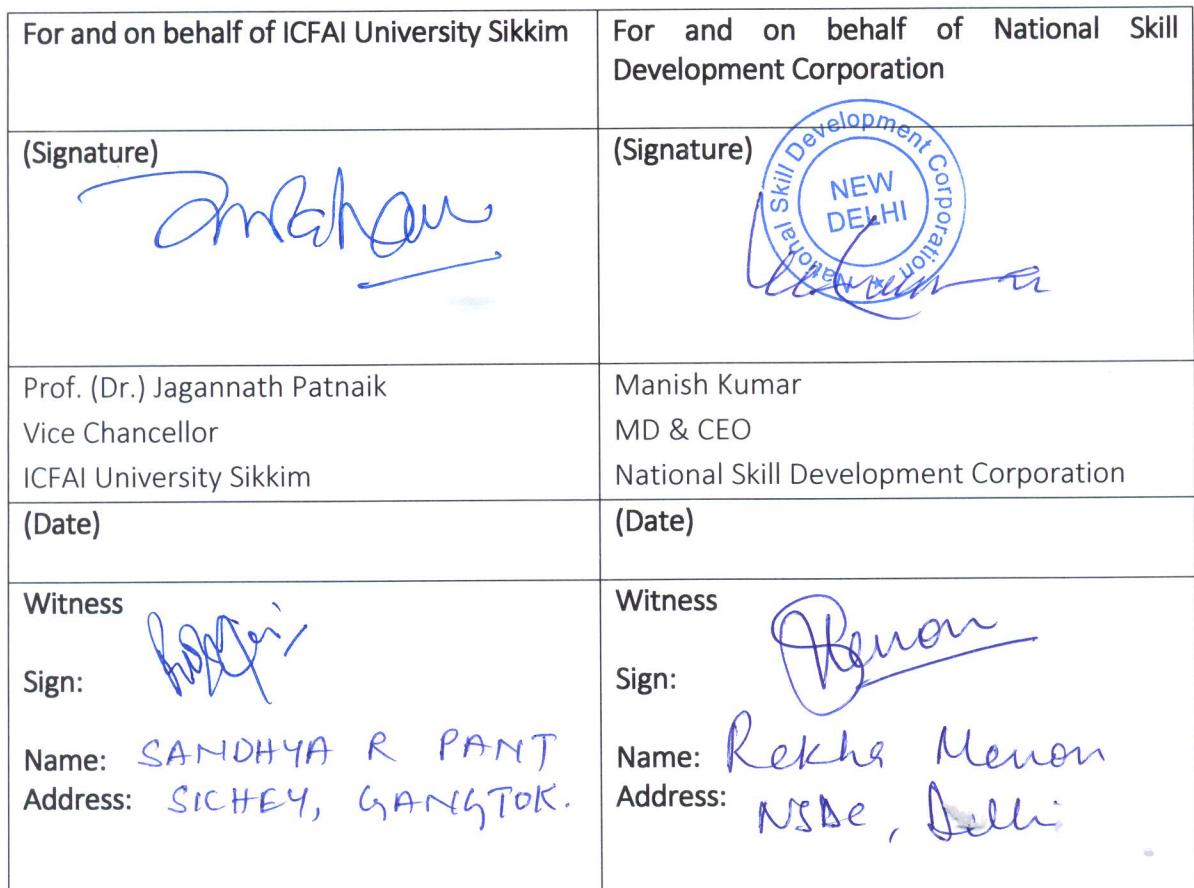 For and on behalf of ICFAI University Sikkim
For and on behalf of National Skill
Development Corporation
(Signature)
(Signature)
National Skill Development Corporation
NEW
DELHI
Prof. (Dr.) Jagannath Patnaik
Vice Chancellor
ICFAI University Sikkim
Manish Kumar
MD & CEO
National Skill Development Corporation
(Date)
(Date)
Witness
Sign:
Name: SANDHYA R PANT
Address: SICHEY, GANGTOK.
Witness
Sign: Menon
Name: Rekha Menon
Address: NSDC, Delhi